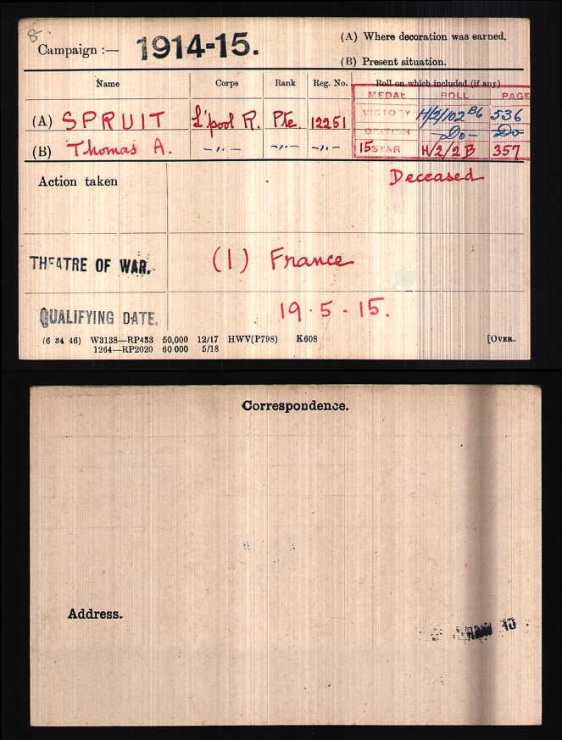 Campaign :— 1914-15.
(A) Where decoration was earned.
(B) Present situation.
Name Corps Rank Reg. No. Roll on which included (if any)
MEDAL ROLL PAGE
(A) SPRUIT L'pool R. Pte. 12251 VICTORY H/2/102 B6 536
(B) Thomas A. —,,— —,,— —,,— BRITISH —Do— Do
15 STAR H/2/2B 357
Action taken
Deceased
THEATRE OF WAR. (1) France
QUALIFYING DATE. 19.5.15.
(6 34 46) W3138—RP483 50,000 12/17 HWV(P798) K608 [OVER.
1264—RP2020 60 000 5/18
Correspondence.
Address.